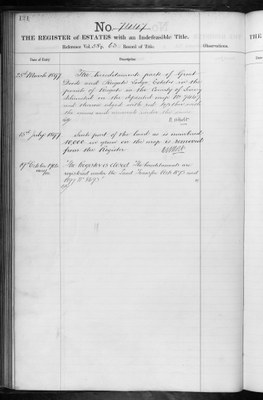 No.
THE REGISTER of ESTATES with an Indefeasible Title.
Reference Vol. Record of Title.
Observations.
Date of Entry. Description
March 1897 The hereditaments part of Great
and Reigate Lodge Estates in the
parish of Reigate in the County of Surrey
delineated on the deposited map No.
and thereon edged with red together with
the mines and minerals under the same
July 1897 Such part of the land as is numbered
in green on the map is removed
from the Register
October The Register is closed. The hereditaments are
registered under the Land Transfer Acts 1875 and
1897